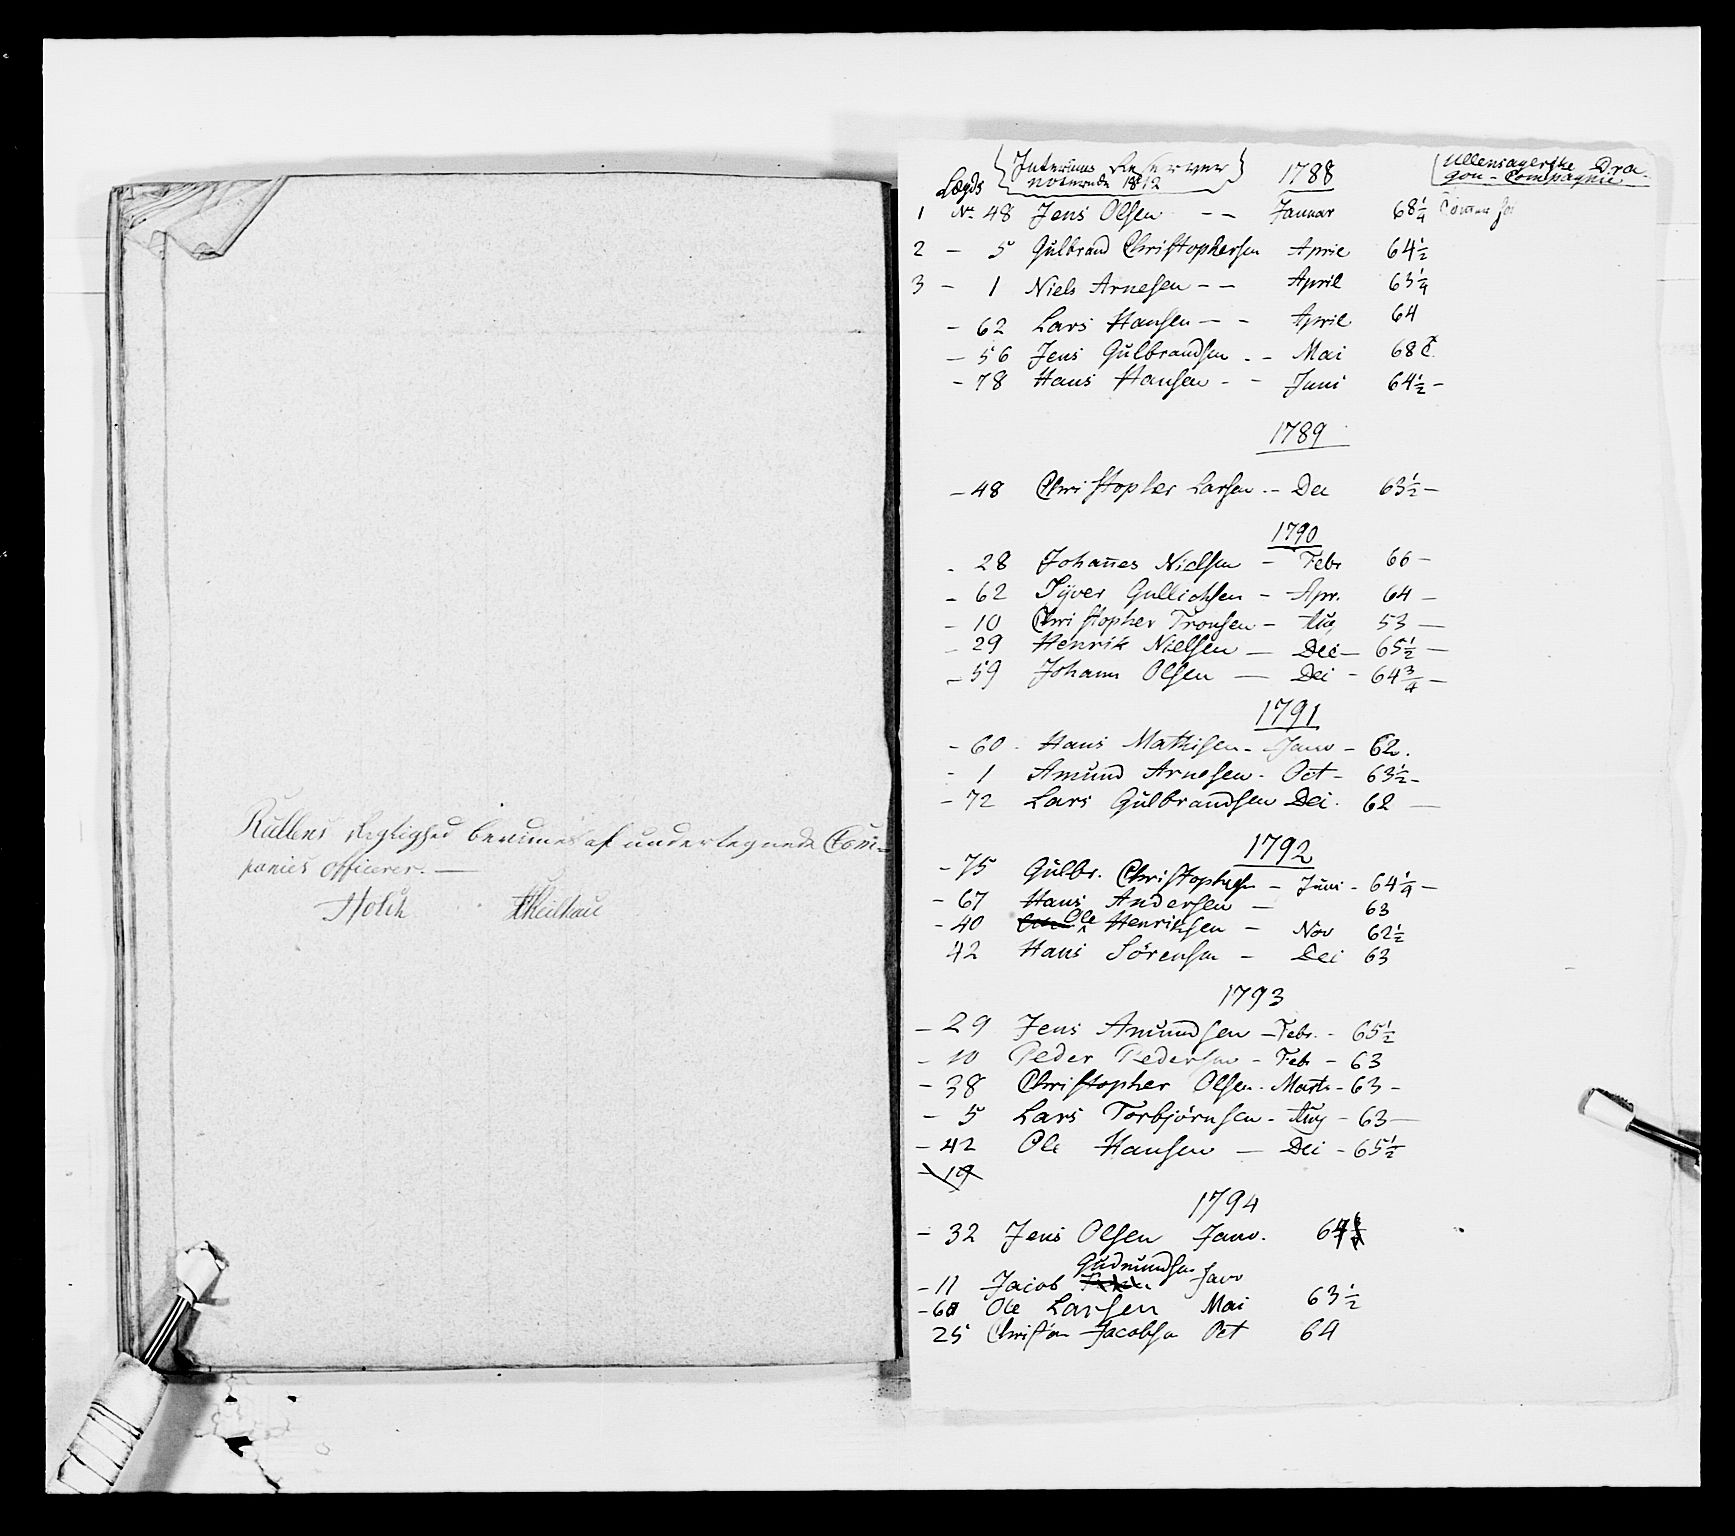 Rullens Rigtighed bevidnes af undertegnede Com-
panies Officerer. —
Holck Theilhau
Lægds
Interims Reserver
noterede 1812
1788
Ullensagerske Dra-
gon-Compagnie
1 No 48 Jens Olsen - - Januar 68 1/4
2 - 5 Gulbrand Christophersen April 64 1/2
3 - 1 Niels Arnesen - - April 63 1/4
- 62 Lars Hansen - - April 64
- 56 Jens Gulbrandsen - - Mai 68
- 78 Hans Hansen - - Juni 64 1/2 -
1789
- 48 Christopher Larsen - - Dec 63 1/2 -
1790
- 28 Johannes Nielsen - Febr 66 -
- 62 Syver Gullichsen - Apr. 64 -
- 10 Christopher Tronsen - Aug 53 -
- 29 Henrik Nielsen - Dec - 65 1/2 -
- 59 Johann Olsen - Dec - 64 3/4 -
1791
- 60 - Hans Mathisen - Janv - 62.
- 1 Amund Arnesen - Oct - 63 1/2 -
- 72 Lars Gulbrandsen Dec. 62 -
1792
- 75 Gulbr. Christophersen - Juni - 64 1/4 -
- 67 Hans Andersen - 63
- 40 Ole Henriksen - Nov 62 1/2
42 Hans Sörensen - Dec 63
1793
- 29 Jens Amundsen - Febr. - 65 1/2
- 10 Peder Pedersen - Feb - 63
- 38 Christopher Olsen - Marts - 63 -
- 5 Lars Torbjörnsen - Aug - 63 -
- 42 Ole Hansen - Dec - 65 1/2
- 19
1794
- 32 Jens Olsen Janv. 64
- 11 Jacob Gudmundsen Janv
- 60 Ole Larsen Mai 63 1/2
25 Christian Jacobsen Oct 64